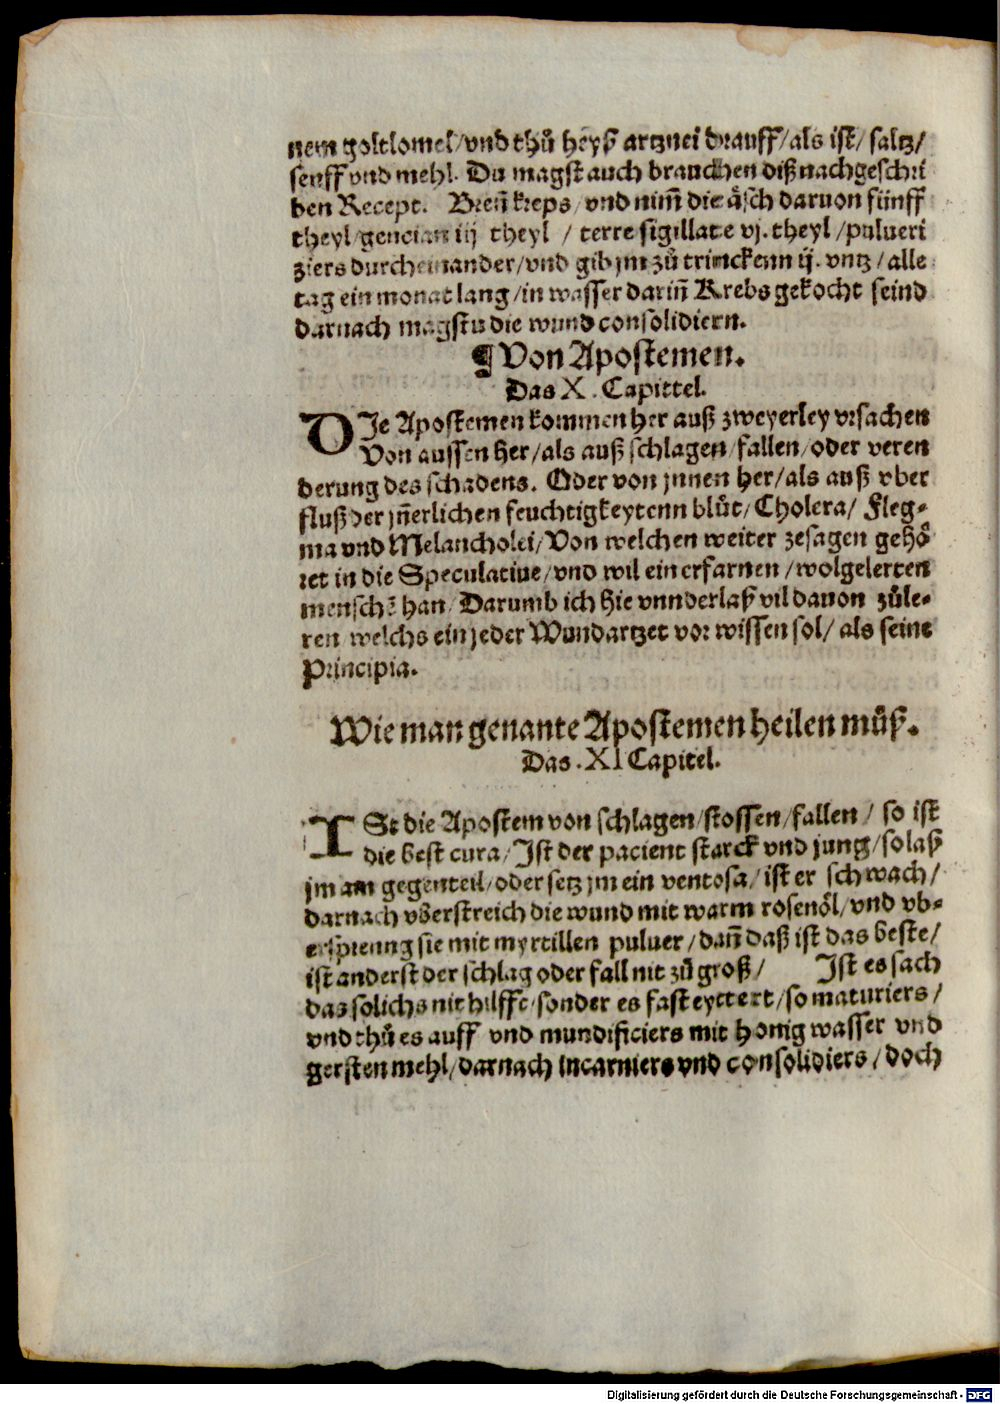 nem goltlomel/vnd thů heyß artznei drauff/als ist/ saltz/
senff vnd mehl. Du magst auch brauchen diß nachgeschri
ben Recept. Breñ kreps/ vnd nim̃ die äsch daruon fünff
theyl/gencian iij theyl / terre sigillate vj. theyl /pulueri
ziers durcheinander/vnd gib jm zů trinckenn ij. vntz / alle
tag ein monat lang/in wasser dariñ Krebs gekocht seind
darnach magstu die wund consolidiern.
¶ Von Apostemen.
Das X. Capittel.
DIe Apostemen kommen her auß zweyerley vrsachen
Von aussen her/als auß schlagen/fallen/oder veren
derung des schadens. Oder von jnnen her/als auß vber
fluß der jñerlichen feuchtigkeytenn blůt/Cholera/ Fleg-
ma vnd Melancholei/Von welchen weiter zesagen gehö
ret in die Speculatiue/vnd wil ein erfarnen/wolgelerten
menschẽ han/Darumb ich hie vnnderlaß vil dauon zůle-
ren welchs ein jeder Wundartzet vor wissen sol/ als seine
Principia.
Wie man genante Apostemen heilen můß.
Das .XI Capitel.
ISt die Apostem von schlagen/stossen/fallen/ so ist
die best cura/Ist der pacient starck vnd jung/so laß
jm am gegenteil/oder setz jm ein ventosa/ist er schwach/
darnach vberstreich die wund mit warm rosenöl/vnd vb-
ersprenng sie mit myrtillen puluer/dañ daß ist das beste/
ist anderst der schlag oder fall nit zů groß/ Ist es sach
das solichs nit hilffe/sonder es fast eyttert/so maturiers/
vnd thů es auff vnd mundificiers mit honig wasser vnd
gersten mehl/darnach incarniers vnd consolidiers/doch
Digitalisierung gefördert durch die Deutsche Forschungsgemeinschaft - DFG